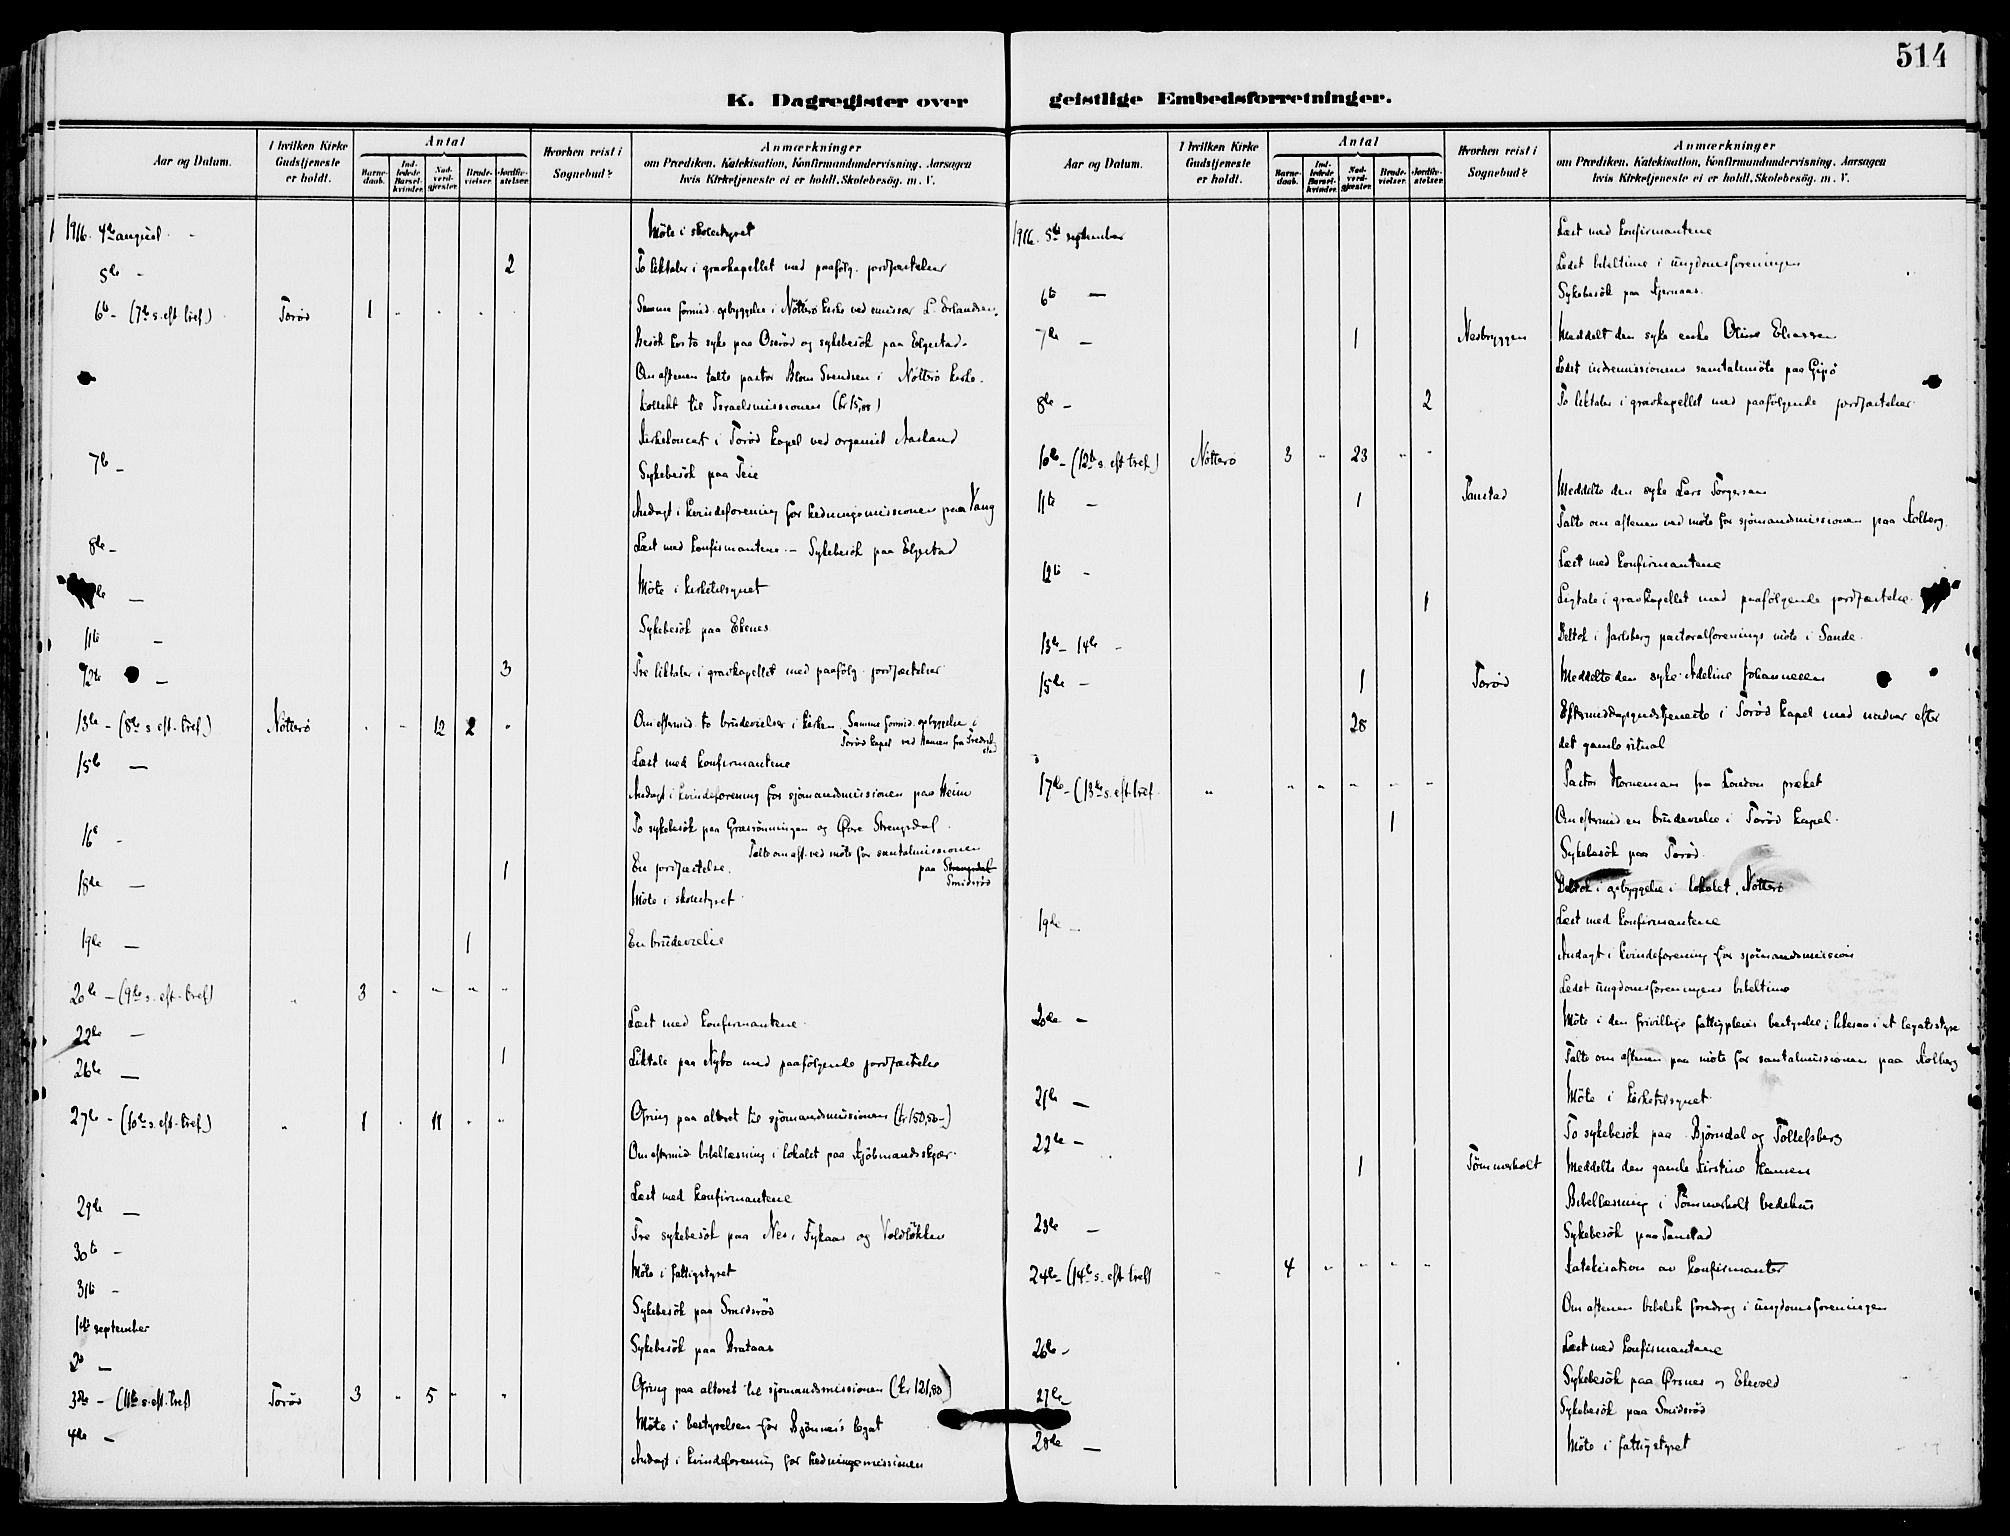 514
K. Dagregister over geistlige Embedsforretninger.
Aar og Datum.
I hvilken Kirke Gudstjeneste er holdt.
Antal
Barnedaab.
Indledede Barselkvinder.
Nadverdgjæster.
Brudevielser.
Jordfæstelser.
Hvorhen reist i Sognebud?
Anmærkninger
om Prædiken, Katekisation, Konfirmandundervisning, Aarsagen
hvis Kirketjeneste ei er holdt, Skolebesøg. m. V.
1916. 4de august - Möte i skolestyret
5te - 2 To liktaler i gravkapellet med paafölg. jordfæstelser
6te - (7de s. eft. tref.) Torød 1 - - - Samme formid. opbyggelse i Nötterö kirke ved emissær L. Erlandsen.
Besök hos to syke paa Oserød og sykebesök paa Elgestad.
Om aftenen talte pastor Blom Svendsen i Nötterö kirke.
Kollekt til Israelsmissionen (kr 15,00)
Kirkekoncert i Torød kapel ved organist Aasland
7de - Sykebesök paa Teie
Andagt i kvindeforening for hedningemissionen paa Vang
8de - Læst med konfirmantene. - Sykebesök paa Elgestad
de - Möte i kirketilsynet
11te - Sykebesök paa Ekenes
12te - 3 Tre liktaler i gravkapellet med paafölg. jordfæstelser
13de - (8de s. eft. tref.) Nötterö - - 12 2 - Om eftermid. to brudevielser i kirken. Samme formid. opbyggelse i
Torød kapel ved Hansen fra Fredrikstad
15de - Læst med konfirmantene
Andagt i kvindeforening for sjömandsmissionen paa Heim
16de - To sykebesök paa Græsrönningen og Övre Strengsdal.
Talte om aft. ved möte for santalmissionen
paa Strengsdal Smidsrød
18de - 1 En jordfæstelse.
Möte i skolestyret
19de - 1 En brudevielse
20de - (9de s. eft. tref) " 3 - - - -
22de - Læst med konfirmantene
26de - 1 Liktale paa Nybo med paafölgende jordfæstelse
27de - (10de s. eft. tref.) " 1 - 11 - - Ofring paa alteret til sjömandsmissionen (kr 150,50-)
Om eftermid. bibellæsning i lokalet paa Kjöbmandsskjær.
29de - Læst med konfirmantene
30te - Tre sykebesök paa Nes, Fykaas og Voldlökken
31te - Möte i fattigstyret
1ste september Sykebesök paa Smidsrød
2de - Sykebesök paa Brataas
3de - (11te s. eft. tref) Torød 3 - 5 - - Ofring paa alteret til sjömandsmissionen (kr 121,80)
4de - Möte i bestyrelsen for Bjönnes's legat
Andagt i kvindeforening for hedningemissionen
1916. 5te september Læst med konfirmantene
Ledet bibeltime i ungdomsforeningen
6te - Sykebesök paa Kjernaas.
7de - 1 Nesbryggen Meddelt den syke enke Oline Eliassen
Ledet indremissionens samtalemöte paa Gipö
8de - 2 To liktaler i gravkapellet med paafölgende jordfæstelser
10de - (12te s. eft tref.) Nötterö 3 - 23 - -
11te - 1 Tanstad Meddelte den syke Lars Torgersen
Talte om aftenen ved möte for sjömandsmissionen paa Kolberg.
12te - Læst med konfirmantene
1 Ligtale i gravkapellet med paafölgende jordfæstelse
13de - 14de - Deltok i Jarlsberg pastoralforenings möte i Sande.
15de - 1 Torød Meddelte den syke Adeline Johannesen
28 Eftermiddagsgudstjeneste i Torød kapel med nadver efter
det gamle ritual
17de - (13de s. eft. tref. " - - - - - Pastor Horneman fra London præket
1 Om eftermid. en brudevielse i Torød kapel.
Sykebesök paa Torød.
Deltok i opbyggelse i lokalet, Nötterö
19de - Læst med konfirmantene
Andagt i kvindeforening for sjömandsmission
Ledet ungdomsforeningens bibeltime
20de - Möte i den frivillige fattigpleies bestyrelse, likesaa i et legatstyre
Talte om aftenen paa möte for santalmissionen paa Kolberg
21de - Möte i kirketilsynet
22de - To sykebesök paa Björndal og Tollefsberg
1 Tömmerholt Meddelte den gamle Kirstine Hansen
Bibellæsning i Tömmerholt bedehus
23de - Sykebesök paa Tanstad
24de - (14de s. eft tref) " 4 - - - - Katekisation av konfirmanter
Om aftenen bibelsk foredrag i ungdomsforeningen
26de - Læst med konfirmantene
Sykebesök paa Örsnes og Ekevold
27de - Sykebesök paa Smidsrød
28de - Möte i fattigstyret